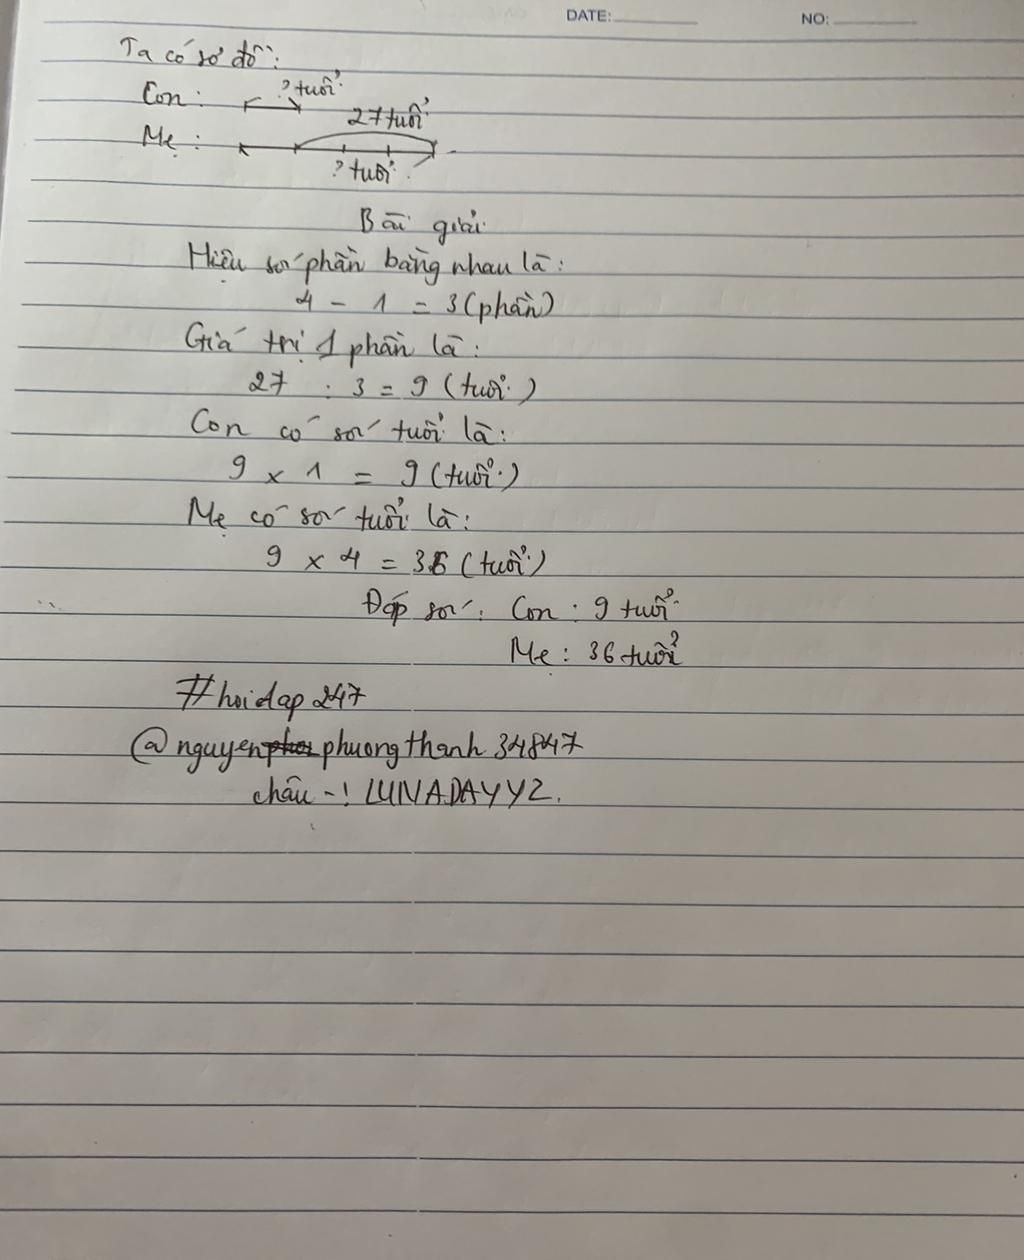 DATE: NO:
Ta có sơ đồ:
Con: ? tuổi
27 tuổi
Mẹ:
? tuổi
Bài giải
Hiệu số phần bằng nhau là:
4 - 1 = 3 (phần)
Giá trị 1 phần là:
27 : 3 = 9 (tuổi)
Con có số tuổi là:
9 x 1 = 9 (tuổi)
Mẹ có số tuổi là:
9 x 4 = 36 (tuổi)
Đáp số: Con: 9 tuổi
Mẹ: 36 tuổi
#hoidap247
@nguyenphuongthanh34847
LUNADAYYZ.